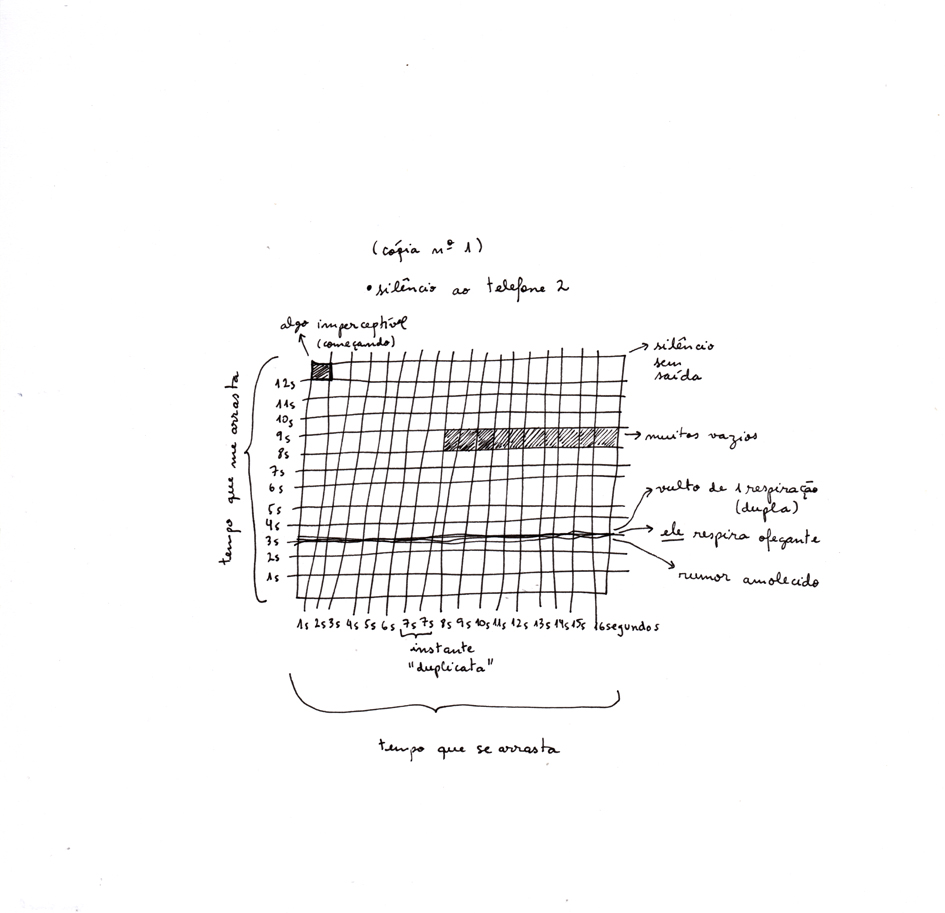 (cópia nº 1)
• silêncio ao telefone 2
algo imperceptível
(começando)
silêncio
sem
saída
tempo que me arrasta
12s
11s
10s
9s
8s
7s
6s
5s
4s
3s
2s
1s
muitos vazios
vulto de 1 respiração
(dupla)
ele respira ofegante
rumor amolecido
1s 2s 3s 4s 5s 6s 7s 7s 8s 9s 10s 11s 12s 13s 14s 15s 16segundos
instante
"duplicata"
tempo que se arrasta